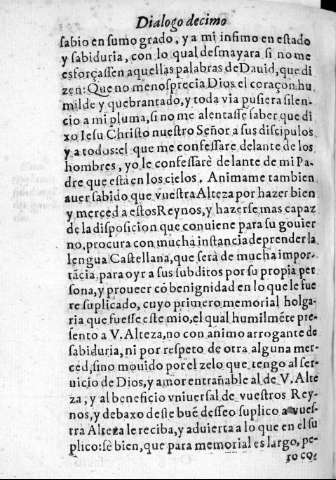 Dialogo decimo
sabio en sumo grado, y a mi infimo en estado
y sabiduria, con lo qual desmayara si no me
esforçassen aquellas palabras de Dauid, que di
zen: Que no menosprecia Dios el coraçon hu
milde y quebrantado, y toda via pusiera silen-
cio a mi pluma, si no me alentasse saber que di
xo Iesu Christo nuestro Señor a sus discipulos
y a todos: el que me confessare delante de los
hombres, yo le confessarè delante de mi Pa-
dre que està en los cielos. Animame tambien
auer sabido que vuestra Alteza por hazer bien
y merced a estos Reynos, y hazerse mas capaz
de la disposicion que conuiene para su gouier
no, procura con mucha instancia deprender la
lengua Castellana, que serà de mucha impor-
tãcia para oyr a sus subditos por su propia per
sona, y proueer cõ benignidad en lo que le fue
re suplicado, cuyo primero memorial holga-
ria que fuesse este mio, el qual humilmẽte pre-
sento a V. Alteza, no con animo arrogante de
sabiduria, ni por respeto de otra alguna mer-
ced, sino mouido por el zelo que tengo al ser-
uicio de Dios, y amor entrañable al de V. Alte
za, y al beneficio vniuersal de vuestros Rey-
nos, y debaxo deste buẽ desseo suplico a vues-
tra Alteza le reciba, y aduierta a lo que en el su
plico: sè bien, que para memorial es largo, pe-